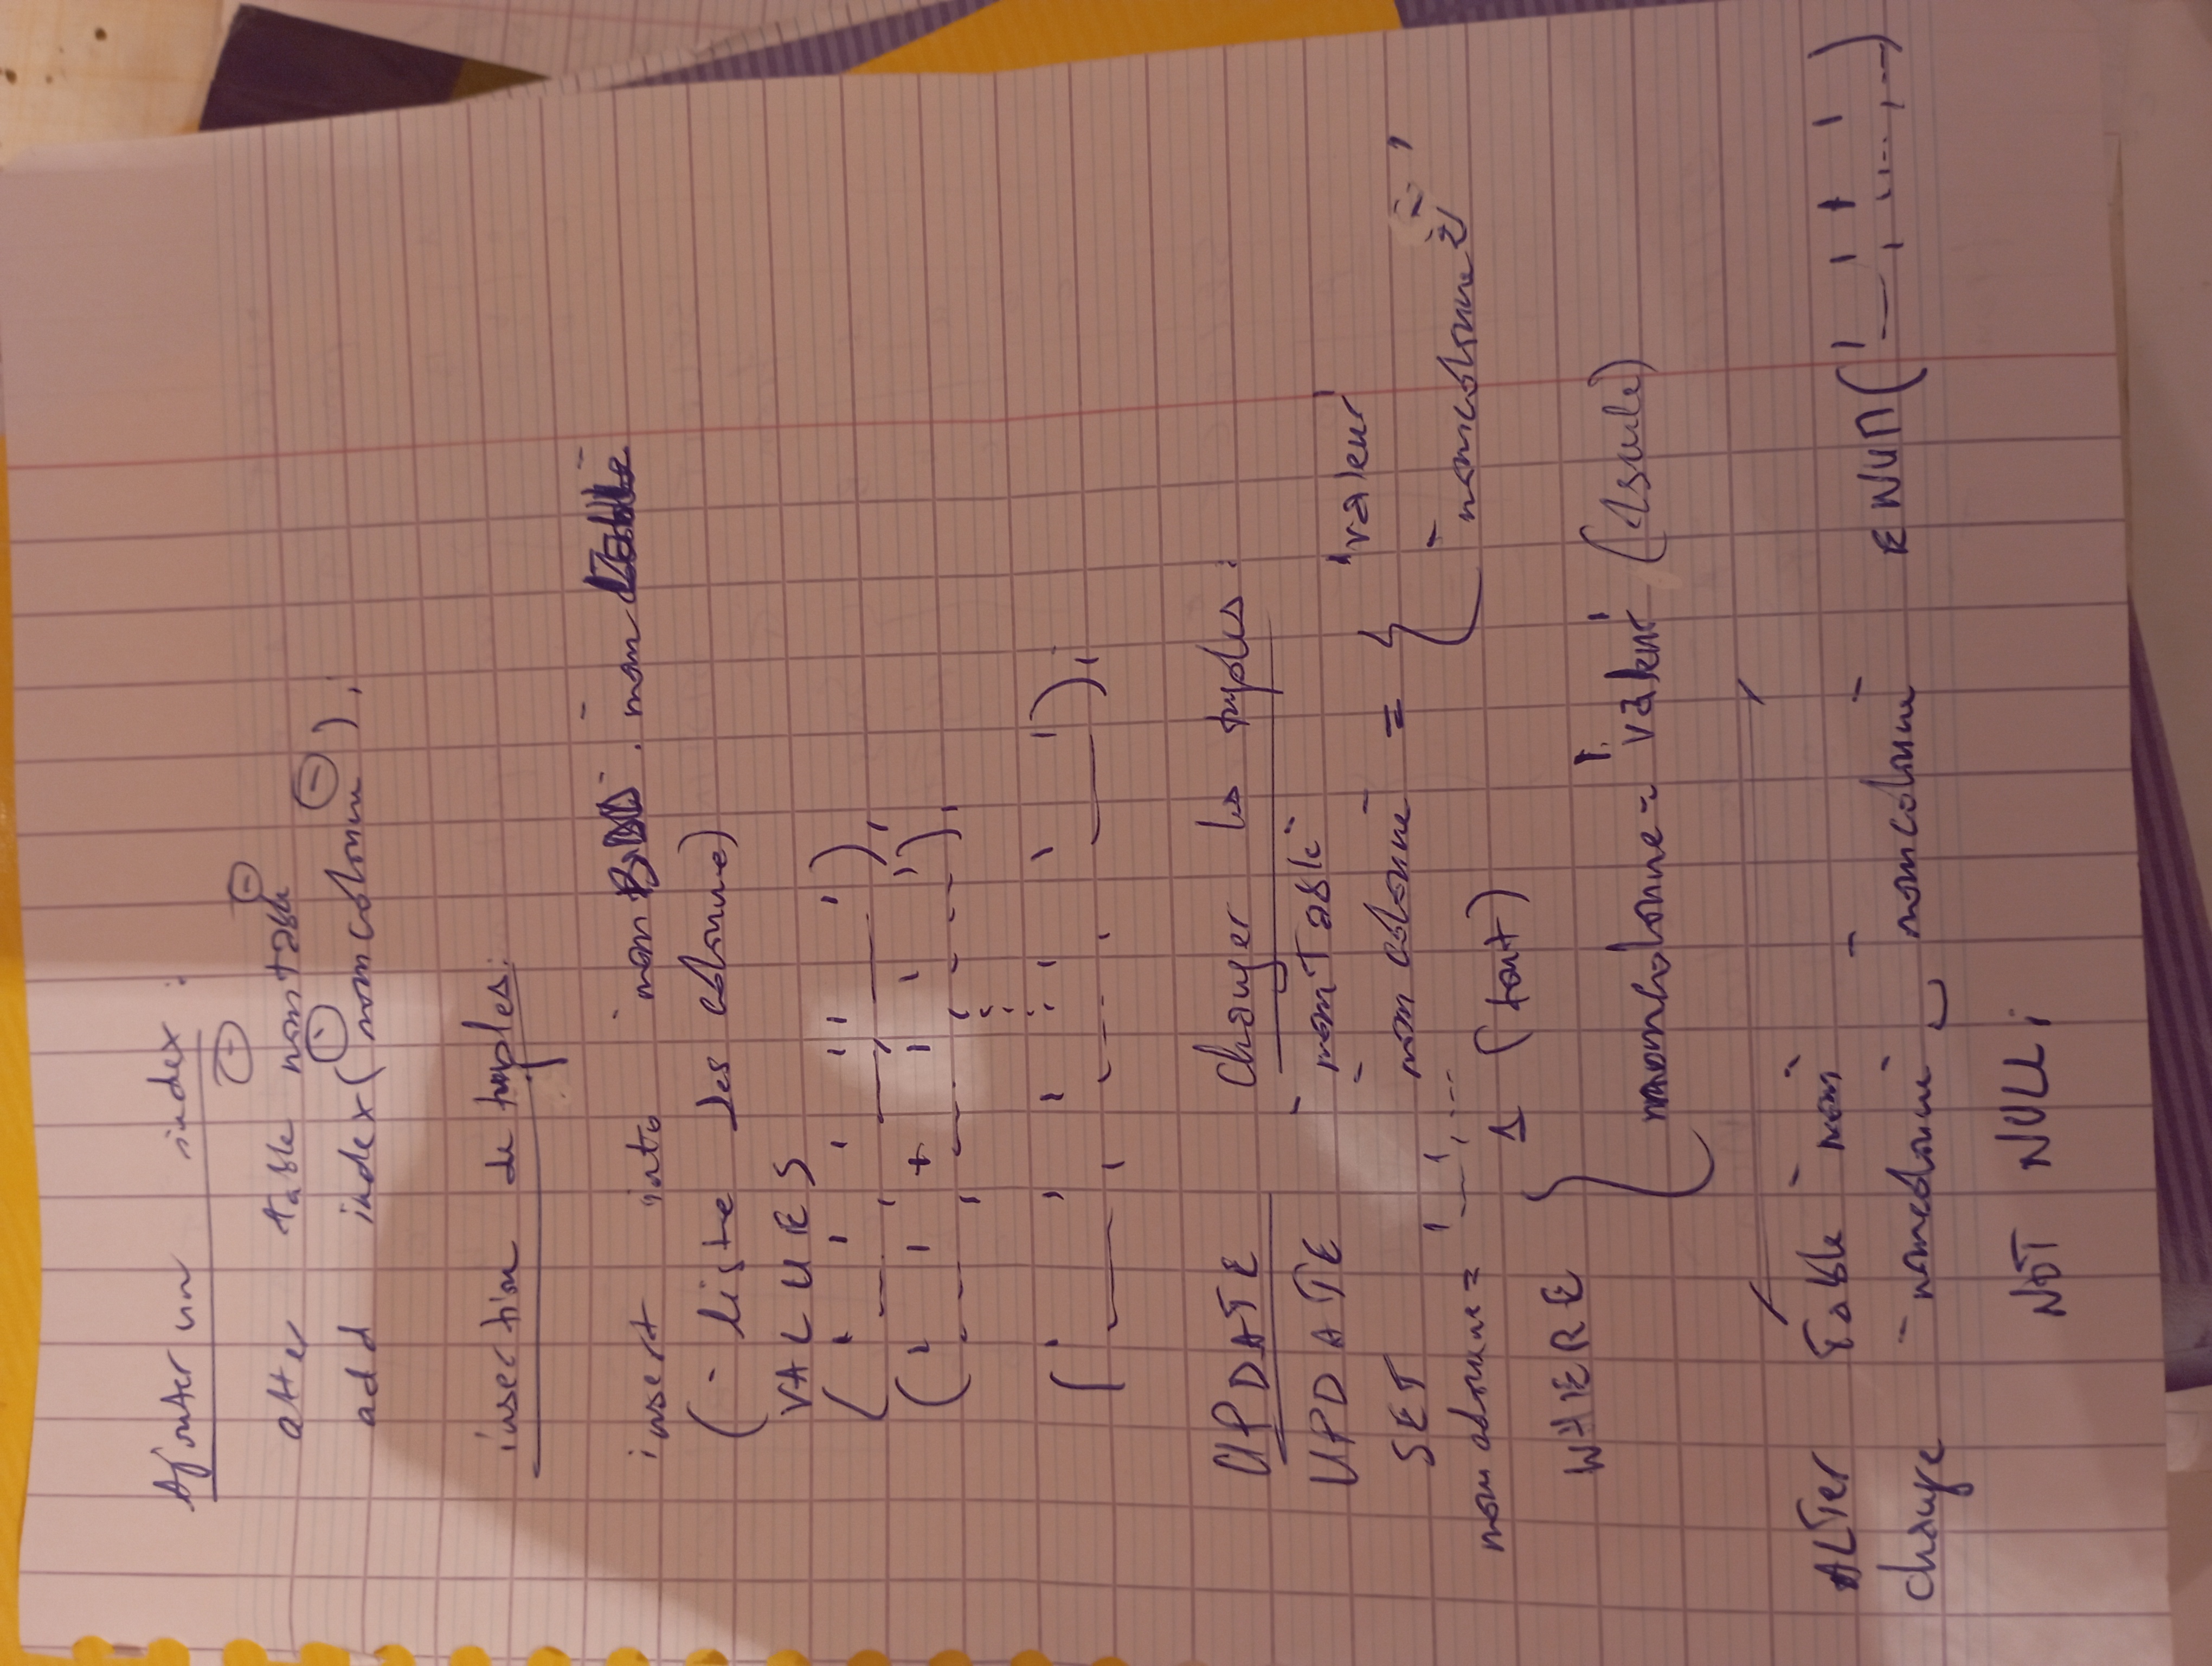 Ajouter un index :
alter table `nomtable`
add index(`nomcolonne`);
insertion de tuples:
insert into `nomBDD`.`nomtable`
(` liste des colonne)
VALUES
('__', '__','__'),
('__', '__', '__'),
('__', '__', '__');
UPDATE Changer les tuples :
UPDATE `nomTable`
SET `nomcolonne` = { 'valeur'
`nomcolonne2`,
nomcolonne = '__', ...
WHERE { 1 (tout)
nomcolonne = 'valeur' (1seule)
ALTer Table `nom`
change `nomcolonne` `nomcolonne` ENUM('__', '...', __)
NOT NULL;